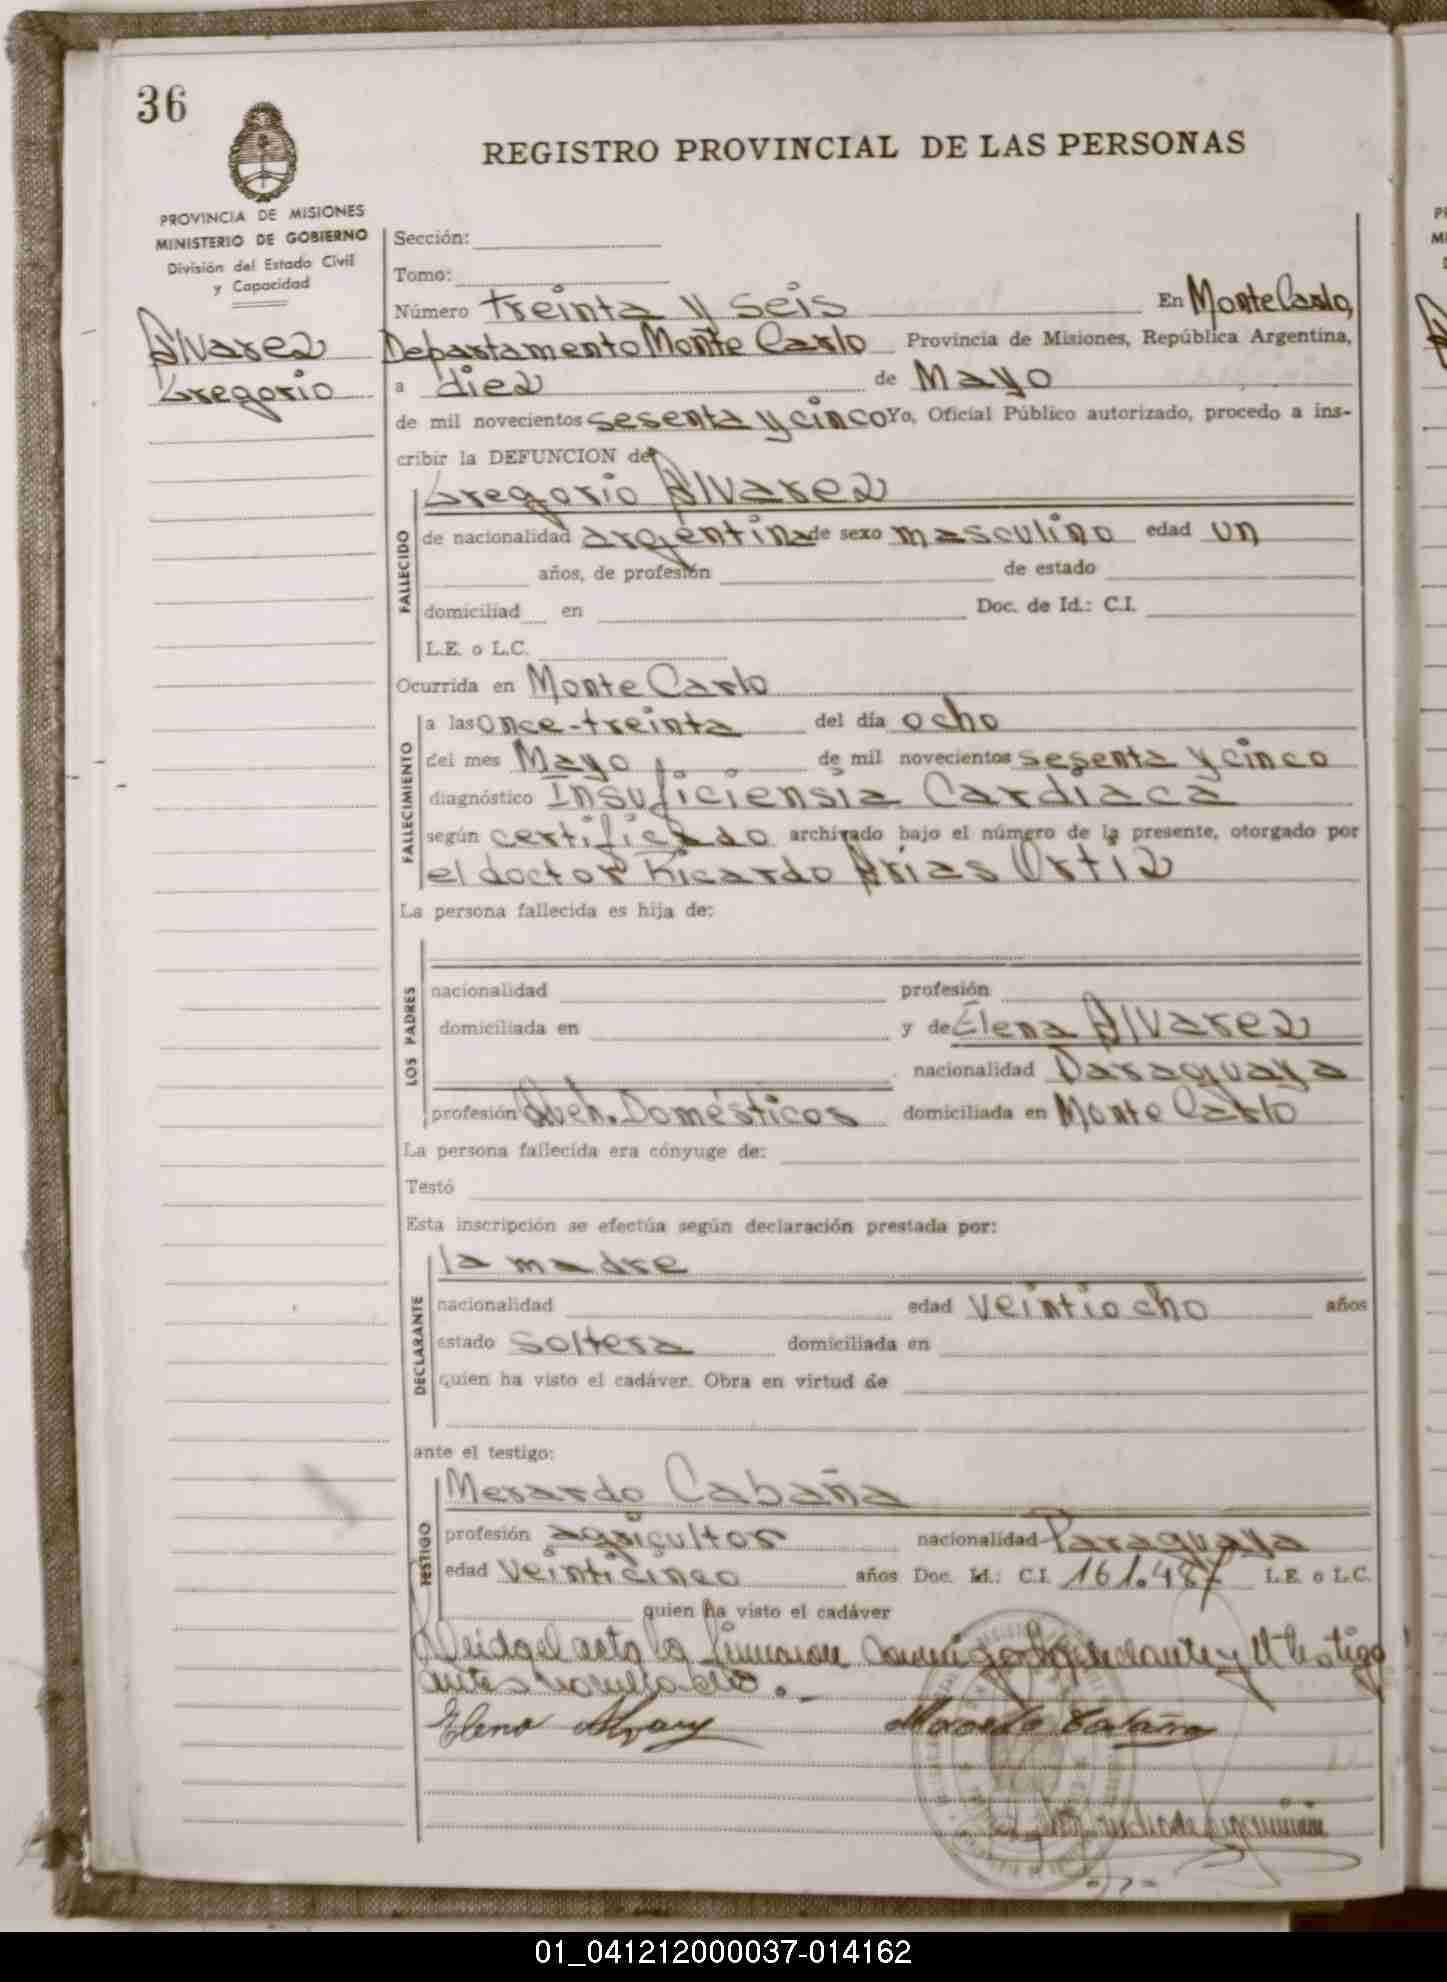 36
REGISTRO PROVINCIAL DE LAS PERSONAS
PROVINCIA DE MISIONES
MINISTERIO DE GOBIERNO
División del Estado Civil
y Capacidad
Alvarez
Gregorio
Sección:
Tomo:
Número treinta y seis En Monte Carlo,
Departamento Monte Carlo Provincia de Misiones, República Argentina,
a diez de Mayo
de mil novecientos sesenta y cinco Yo, Oficial Público autorizado, procedo a ins-
cribir la DEFUNCION de
Gregorio Alvarez
FALLECIDO
de nacionalidad argentina de sexo masculino edad un
años, de profesión de estado
domiciliad en Doc. de Id.: C.I.
L.E. o L.C.
Ocurrida en Monte Carlo
FALLECIMIENTO
a las once-treinta del día ocho
del mes Mayo de mil novecientos sesenta y cinco
diagnóstico Insuficiensia Cardiaca
según certificado archivado bajo el número de la presente, otorgado por
el doctor Ricardo Arias Ortiz
La persona fallecida es hija de:
LOS PADRES
nacionalidad profesión
domiciliada en y de Elena Alvarez
nacionalidad Paraguaya
profesión Queh. Domésticos domiciliada en Monte Carlo
La persona fallecida era cónyuge de:
Testó
Esta inscripción se efectúa según declaración prestada por:
la madre
DECLARANTE
nacionalidad edad veintiocho años
estado soltera domiciliada en
quien ha visto el cadáver. Obra en virtud de
ante el testigo:
Merardo Cabaña
TESTIGO
profesión agricultor nacionalidad Paraguaya
edad veinticinco años Doc. Id.: C.I. 161.487 L.E. o L.C.
quien ha visto el cadáver
Leida el acta la firmaron conmigo la declarante y el testigo
antes nombrado.
Elena Alvarez Merardo Cabaña
01_041212000037-014162